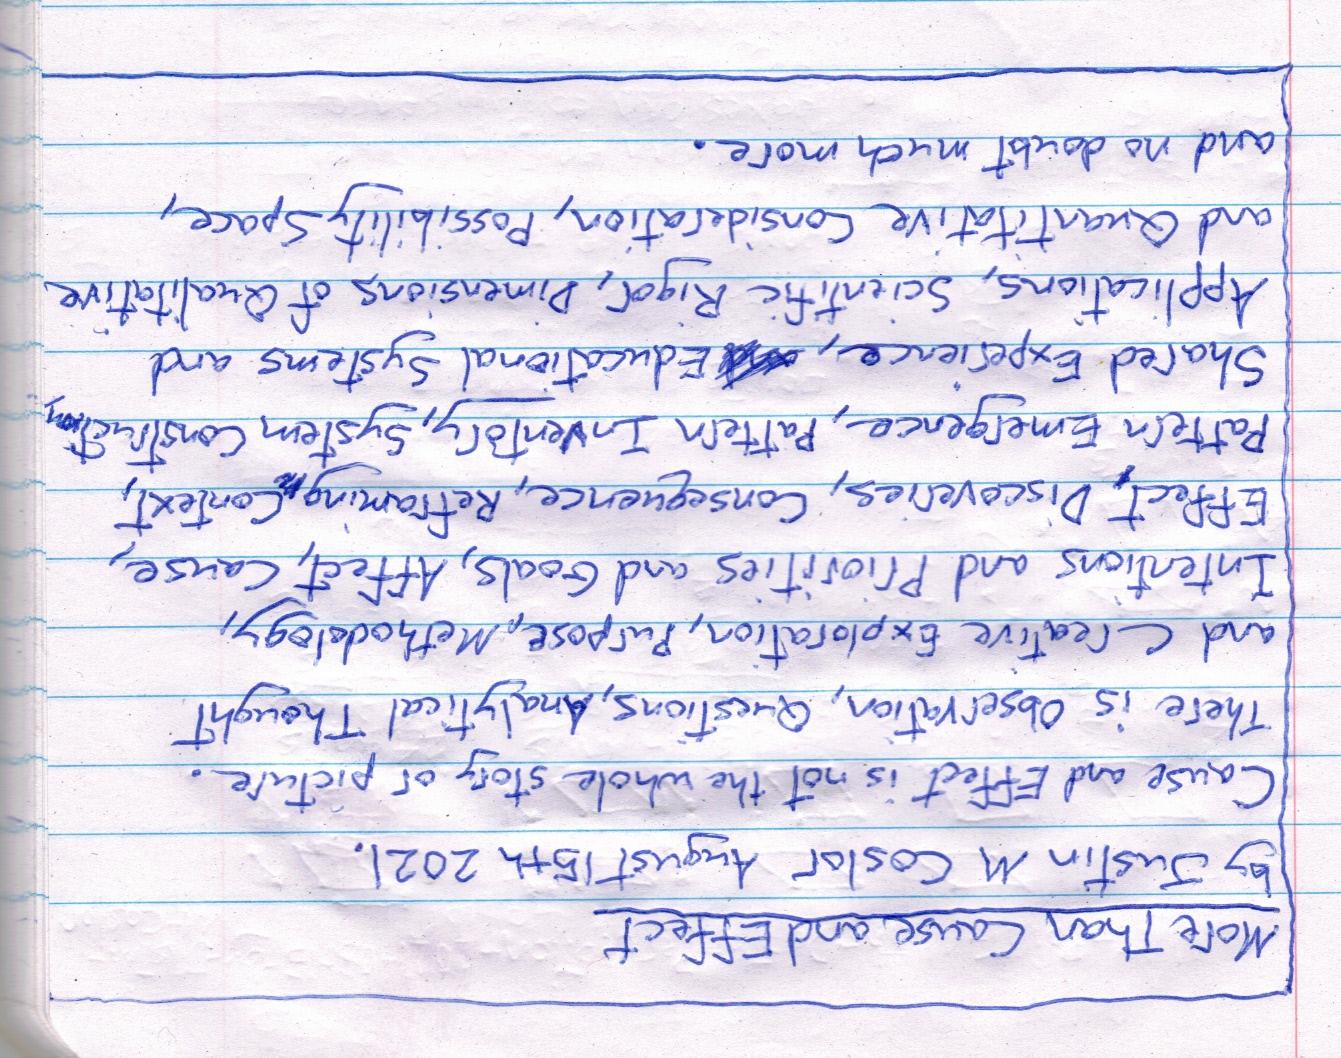 More Than Cause and Effect
by Justin M Coslor August 15th 2021.
Cause and Effect is not the whole story or picture.
There is Observation, Questions, Analytical Thought
and Creative Exploration, Purpose, Methodology,
Intentions and Priorities and Goals, Affect, Cause,
Effect, Discoveries, Consequence, Reframing in Context,
Pattern Emergence, Pattern Inventory, System Construction,
Shared Experience, Educational Systems and
Applications, Scientific Rigor, Dimensions of Qualitative
and Quantitative Consideration, Possibility Space,
and no doubt much more.